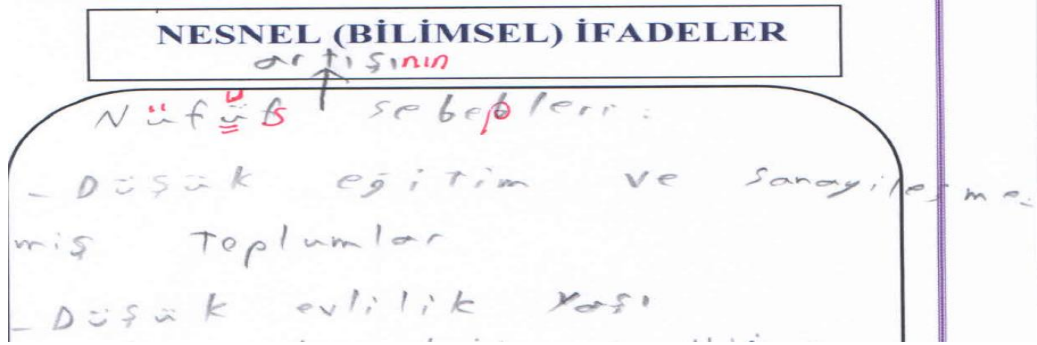 NESNEL (BİLİMSEL) İFADELER
artışının
Nüfüs sebepleri:
- Düşük eğitim ve sanayileşme-
miş Toplumlar
- Düşük evlilik yaşı